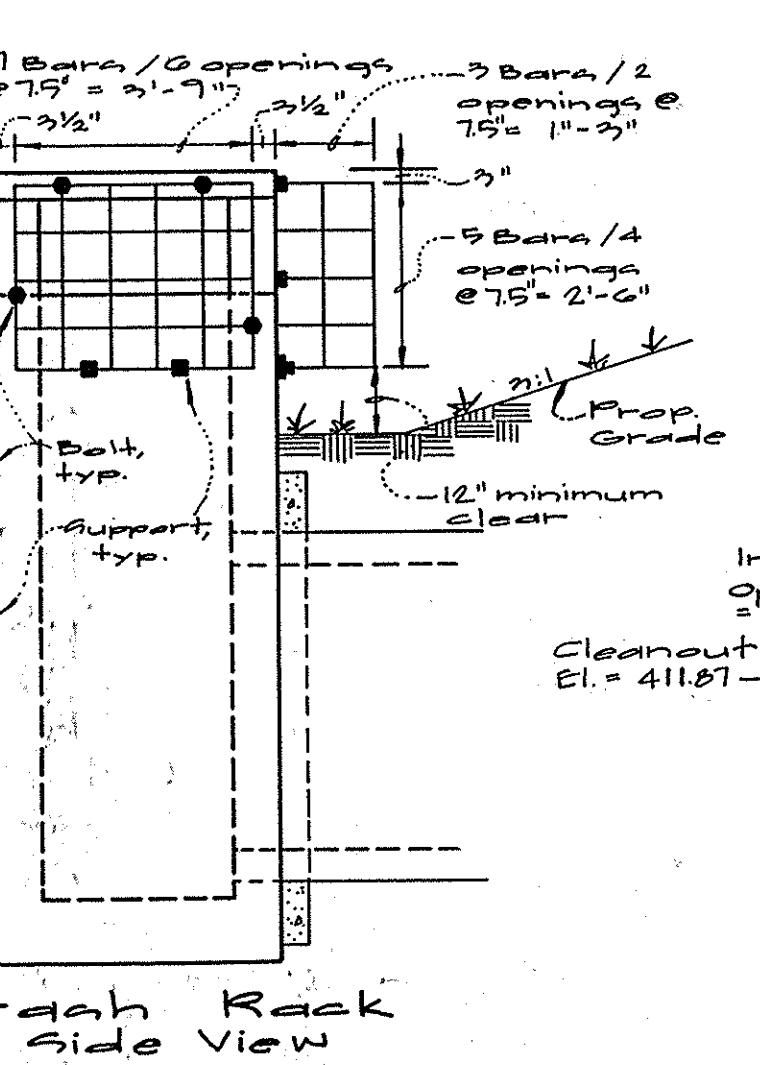 7 Bars /6 openings
@ 7.5" = 3'-9"
3½"
3½"
3 Bars /2
openings @
7.5"= 1"-3"
3"
5 Bars /4
openings
@ 7.5"= 2'-6"
3:1
Prop.
Grade
Bolt,
typ.
12" minimum
clear
Support,
typ.
=
Cleanout
El. = 411.87
Rack
Side View